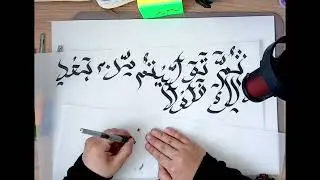 ثُمَّ تَوَلَّيْتُم مِّن بَعْدِ
ذَٰلِكَ فَلَوْلَا